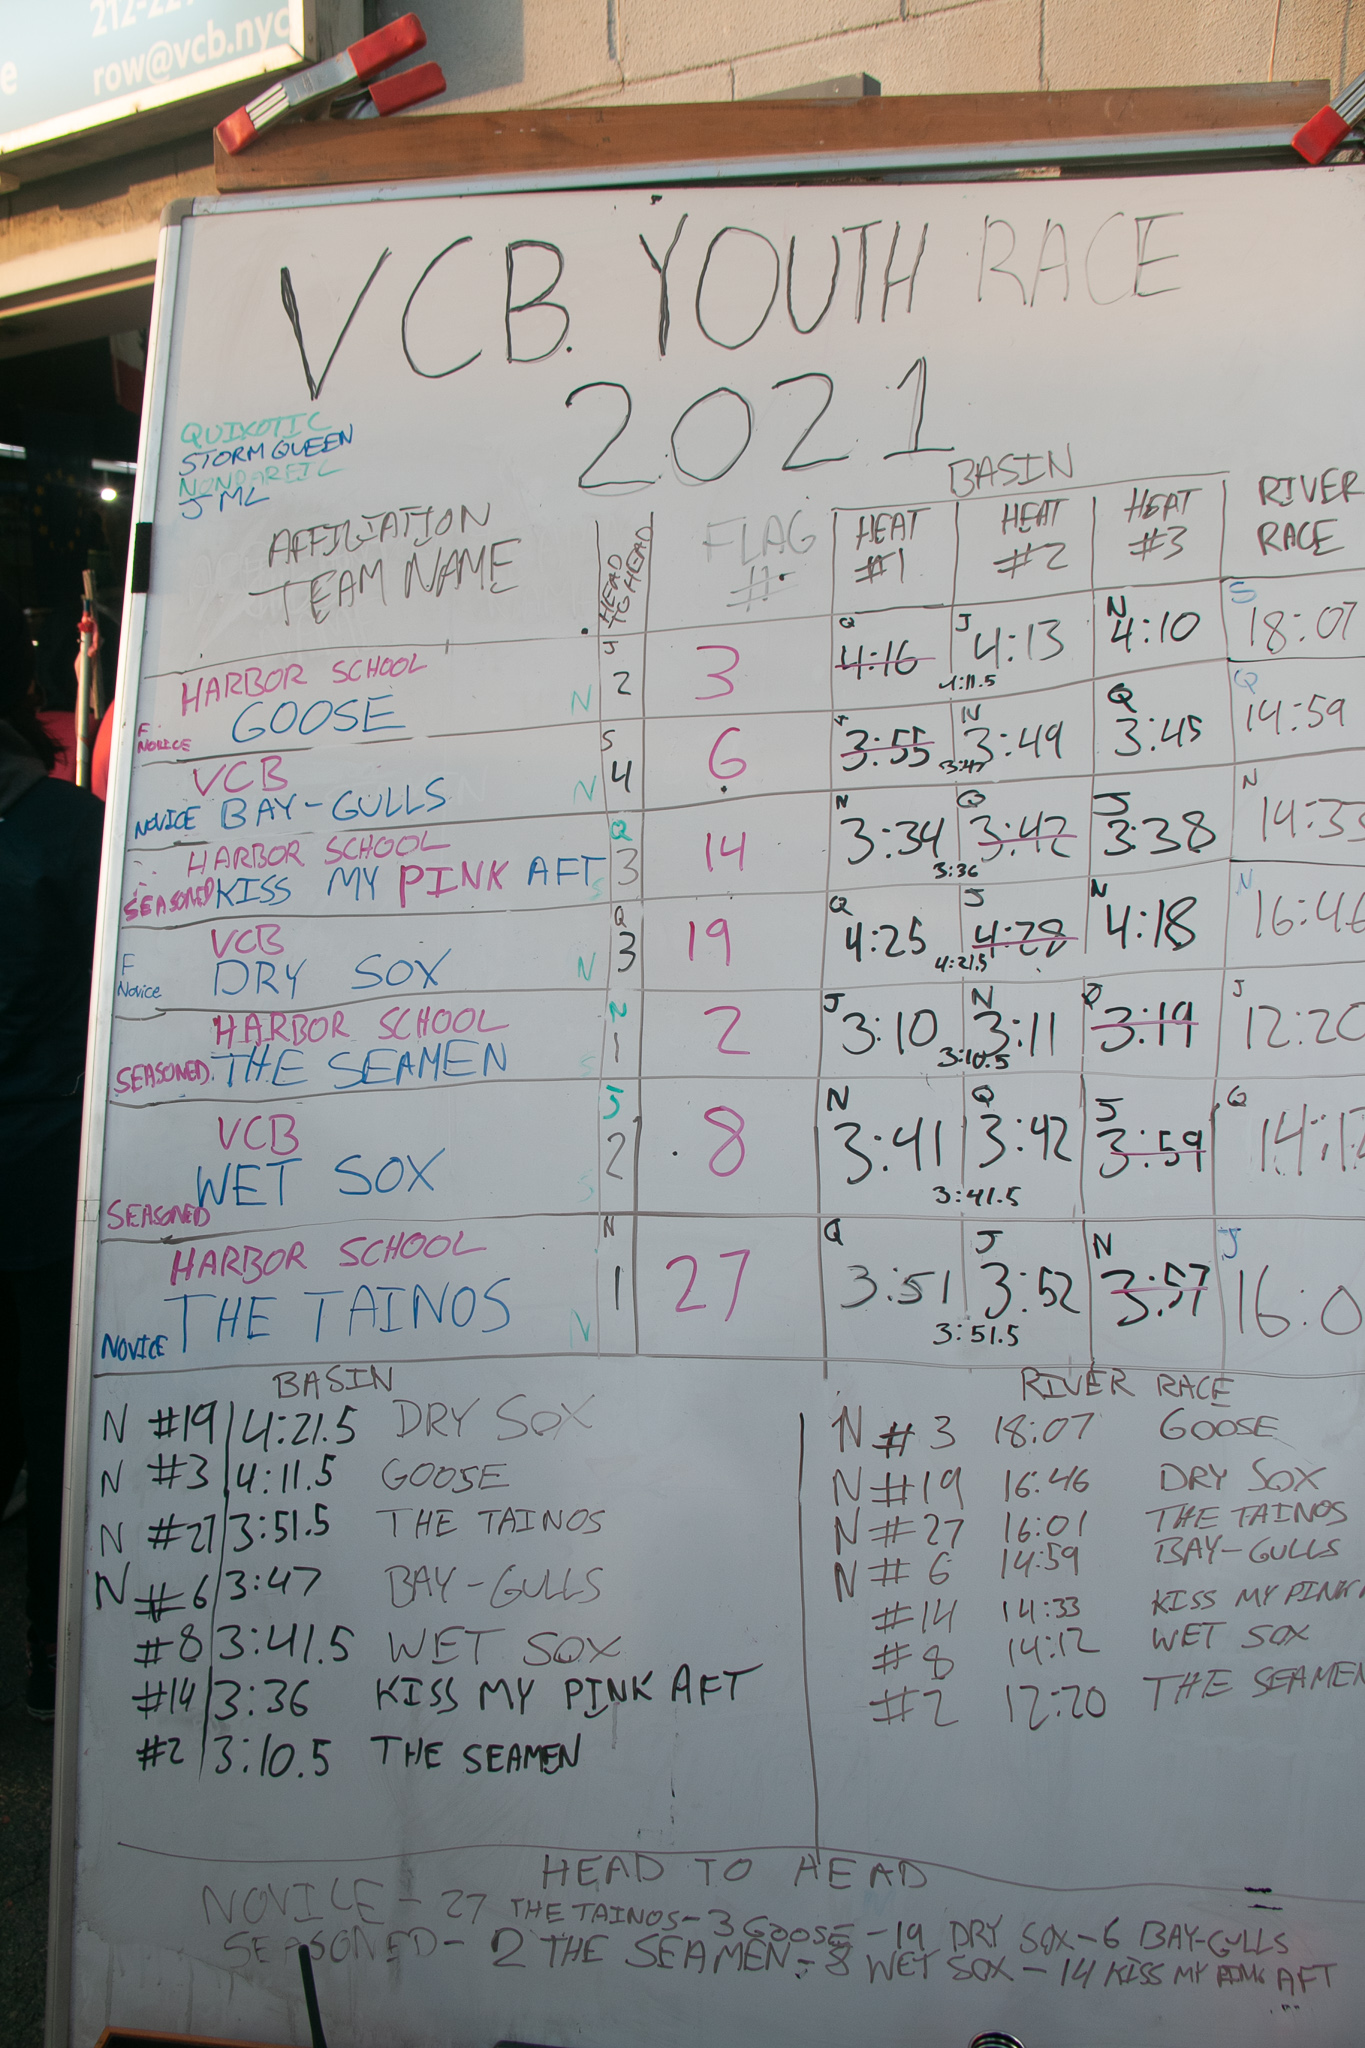 row@vcb.nyc
VCB. YOUTH RACE
2021
QUIXOTIC
STORM QUEEN
NONPAREIL
JML
AFFILIATION
TEAM NAME
HEAD TO HEAD
FLAG #
BASIN
HEAT #1
HEAT #2
HEAT #3
RIVER RACE
HARBOR SCHOOL
GOOSE
F NOVICE
N
J 2
3
Q 4:16
J 4:13
4:11.5
N 4:10
S 18:07
VCB
NOVICE BAY-GULLS
N
S 4
6
3:55
N 3:49
3:47
Q 3:45
Q 14:59
HARBOR SCHOOL
SEASONED KISS MY PINK AFT
S
Q 3
14
N 3:34
Q 3:42
3:36
J 3:38
N 14:33
VCB
F Novice DRY SOX
N
Q 3
19
Q 4:25
J 4:28
4:21.5
N 4:18
N 16:46
HARBOR SCHOOL
SEASONED. THE SEAMEN
S
N 1
2
J 3:10
N 3:11
3:10.5
Q 3:19
J 12:20
VCB
WET SOX
SEASONED
S
J 2
8
N 3:41
Q 3:42
3:41.5
J 3:59
Q 14:12
HARBOR SCHOOL
NOVICE THE TAINOS
N
N 1
27
Q 3:51
J 3:52
3:51.5
N 3:57
J 16:0
BASIN
N #19 4:21.5 DRY SOX
N #3 4:11.5 GOOSE
N #27 3:51.5 THE TAINOS
N #6 3:47 BAY-GULLS
#8 3:41.5 WET SOX
#14 3:36 KISS MY PINK AFT
#2 3:10.5 THE SEAMEN
RIVER RACE
N #3 18:07 GOOSE
N #19 16:46 DRY SOX
N #27 16:01 THE TAINOS
N #6 14:59 BAY-GULLS
#14 14:33 KISS MY PINK
#8 14:12 WET SOX
#2 12:20 THE SEAMEN
HEAD TO HEAD
NOVICE - 27 THE TAINOS - 3 GOOSE - 19 DRY SOX - 6 BAY-GULLS
SEASONED - 2 THE SEAMEN - 8 WET SOX - 14 KISS MY PINK AFT